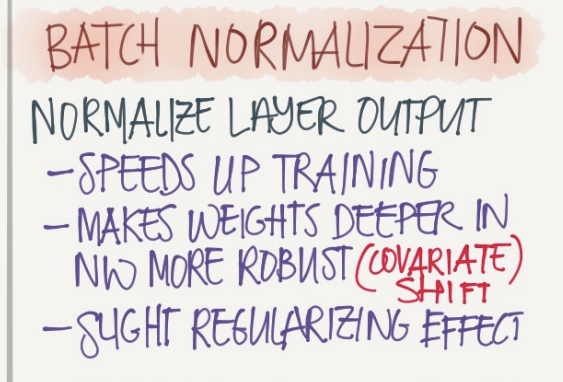 BATCH NORMALIZATION
NORMALIZE LAYER OUTPUT
- SPEEDS UP TRAINING
- MAKES WEIGHTS DEEPER IN
NW MORE ROBUST (COVARIATE)
SHIFT
- SLIGHT REGULARIZING EFFECT